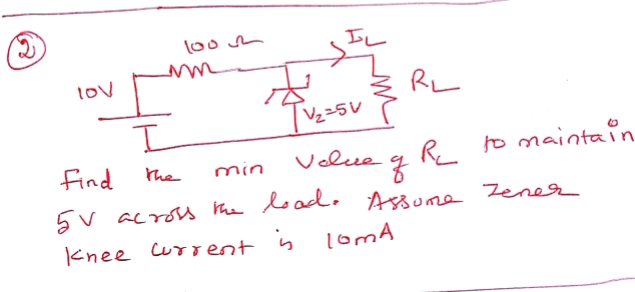 2
100 Ω
IL
10V
RL
Vz=5V
Find the min Value of RL to maintain
5V across the load. Assume Zener
Knee current is 10mA